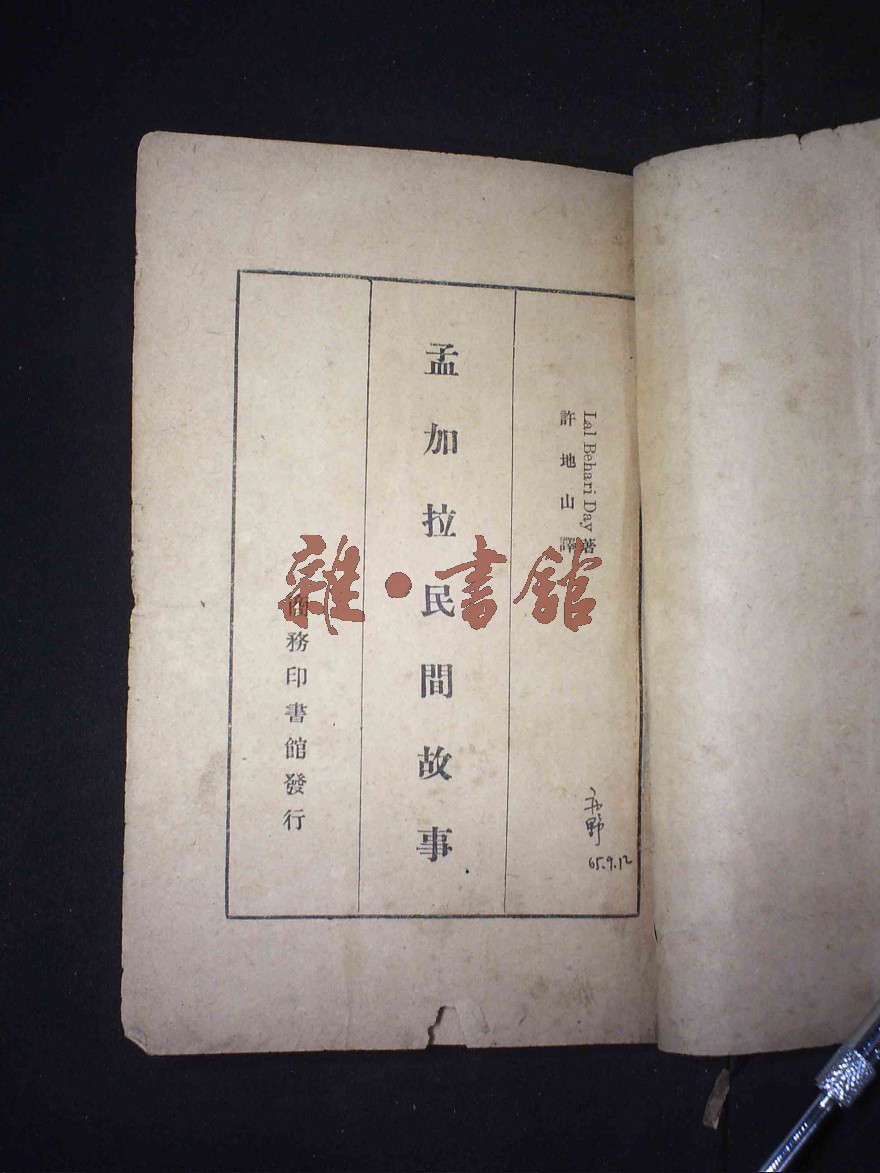 Lal Behari Day 著
許地山譯
孟加拉民間故事
商務印書館發行
雜·書館
野
65.9.12